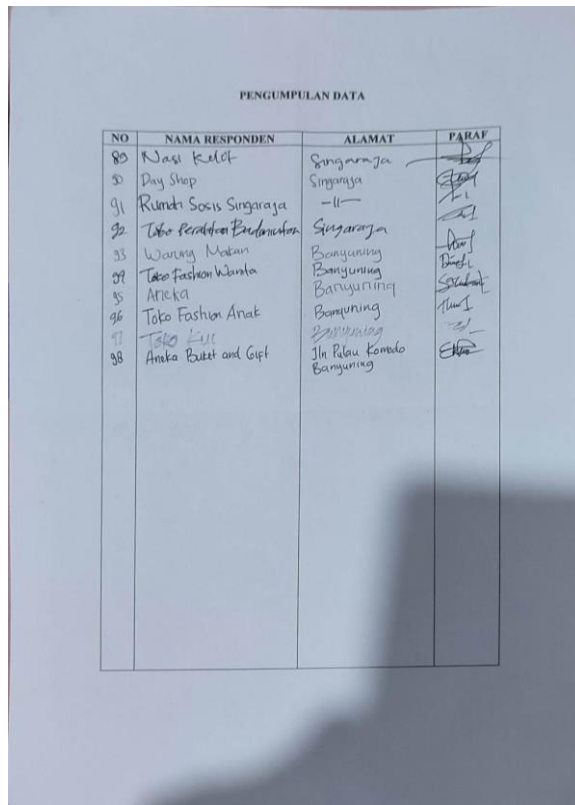 PENGUMPULAN DATA
NO NAMA RESPONDEN ALAMAT PARAF
89 Nasi Singaraja
90 Day Shop Singaraja
91 Rumah Sosis Singaraja -11-
92 Toko Singaraja
93 Warung Makan Banyuning
94 Toko Fashion Wanita Banyuning
95 Aneka Banyuning
96 Toko Fashion Anak Banyuning
97 Toko Kue Banyuning
98 Aneka Buket and Gift Jln Pulau Komodo
Banyuning